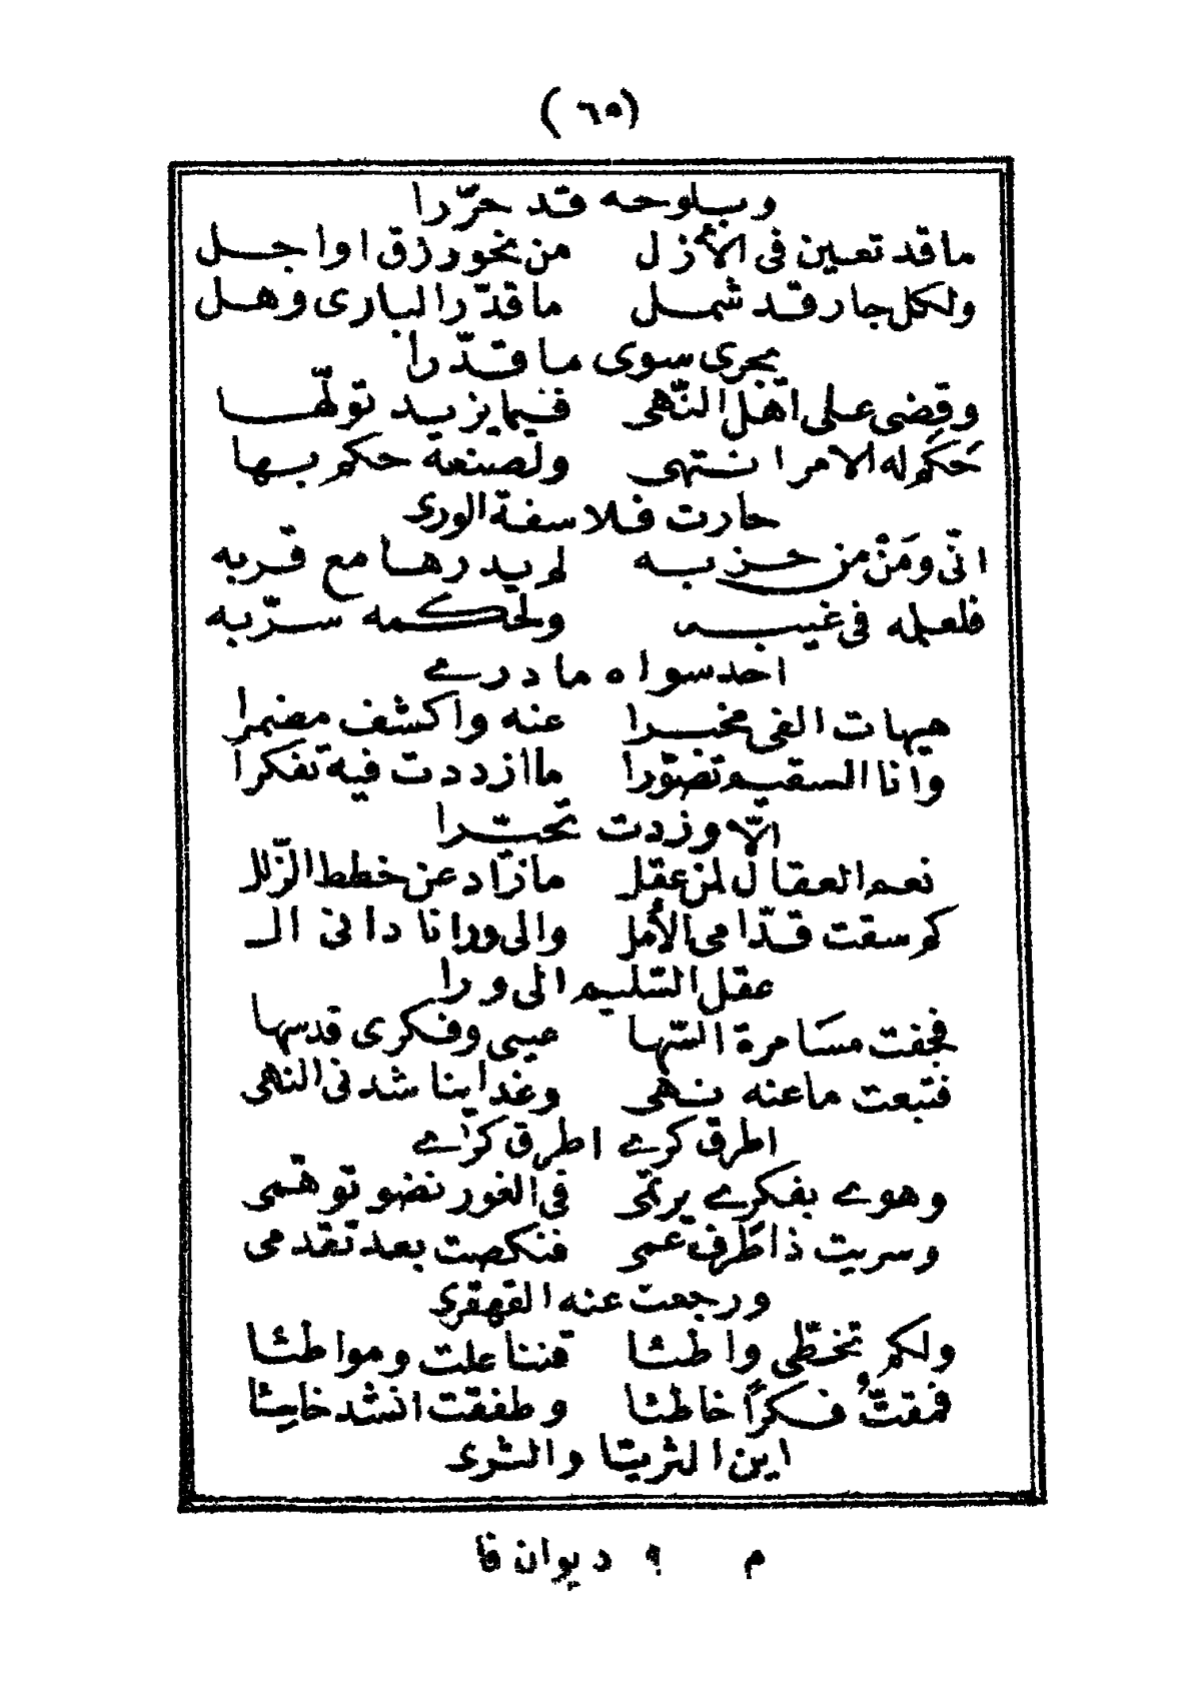 (٦٥)
وبلوحه قد حرّرا
ما قد تعين فى الأزل من نحو رزق او اجل
ولكل جار قد شمل ما قدّر البارى وهل
يجرى سوى ما قدّرا
وقضى على اهل النّهى فيما يزيد تولّها
حكم له الامر انتهى ولصنعة حكم بها
حارت فلاسفة الورى
انّى ومَنْ من حزبه لم يدرها مع قربه
فلعله فى غيبه ولحكمه سرّ به
احد سواه ما درى
هيهات الفى مخبرا عنه واكشف مضمرا
وانا السقيم تصوّرا ما ازددت فيه تفكرا
الّا وزدت تحيّرا
نعم العقال لمن عقل ما زاد عن خطط الزّلل
كم سقت قدّامى الأمل والى ورا نادانى الـ
عقل السّليم الى ورا
فجفت مسَامرة السّها عيسى وفكرى قدسها
فتبعت ما عنه نهى وغدا ينا شد فى النهى
اطرق كرى اطرق كرّاى
وهوى بفكرى يرتمى فى الغور نضو توهّمى
وسريت ذا طَرف عمى فنكصت بعد تقدمى
ورجعت عنه القهقرى
ولكم تخطّى واطئا قننا علت ومواطئا
فمقتُّ فكرًا خاطئا وطفقت انشد خاسِئا
اين الثريّا والثرى
م ٩ ديوان فا